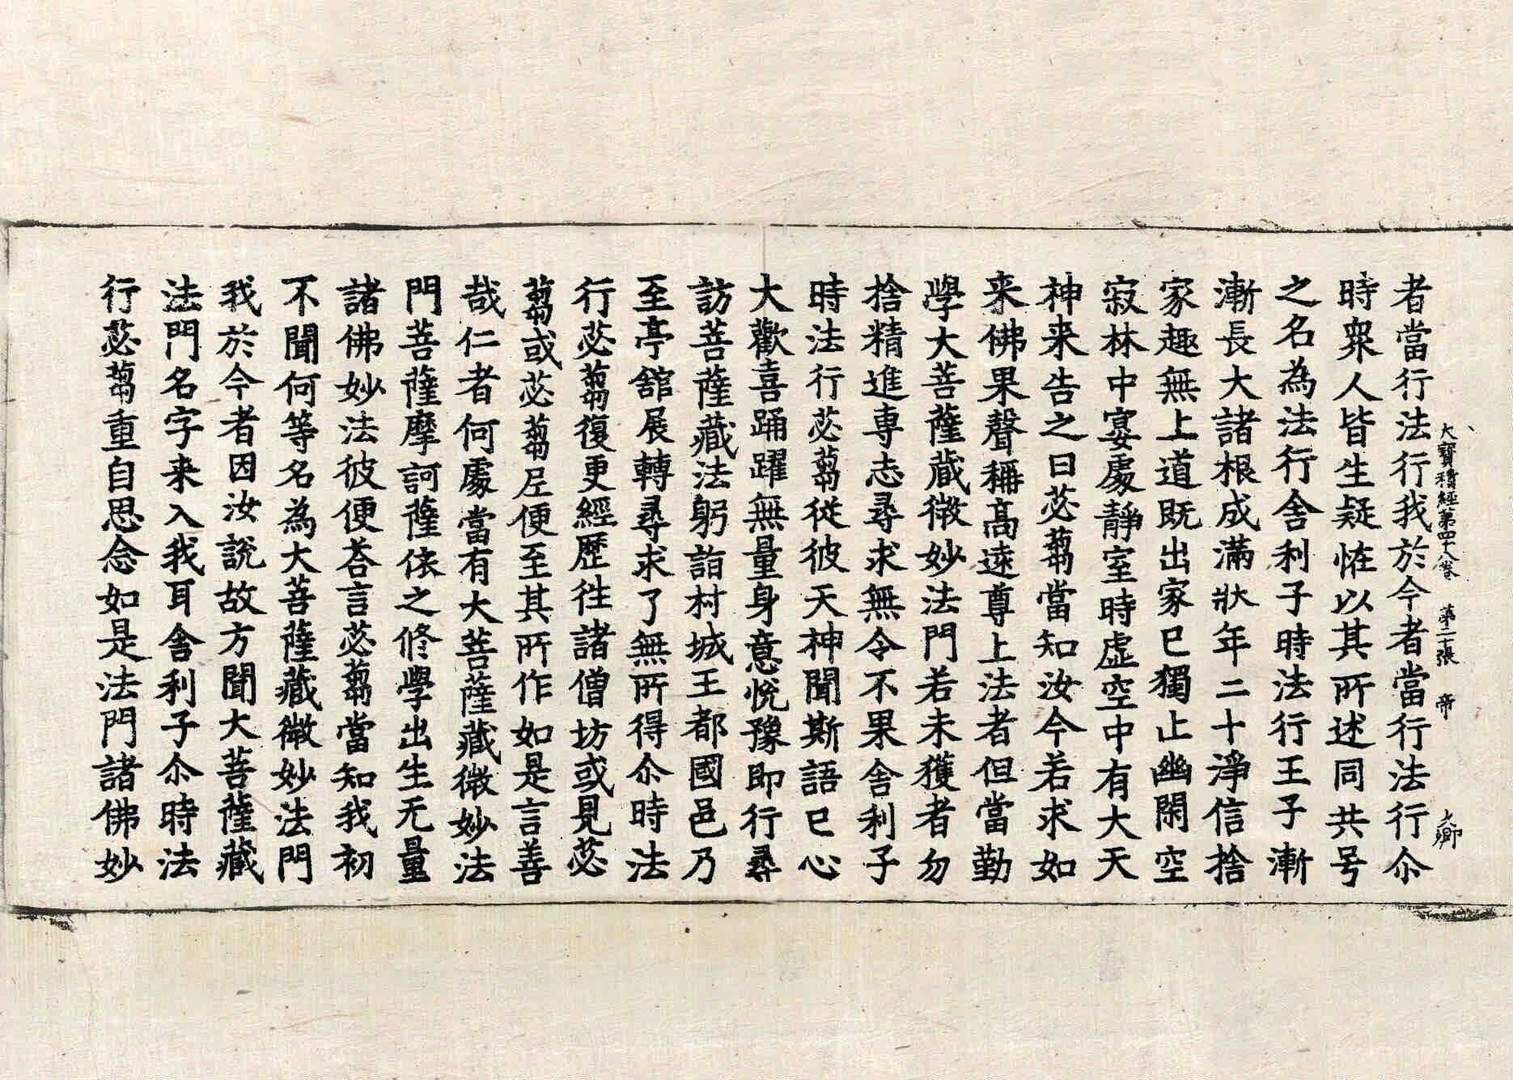 大寶積經第四十八卷　第二張　帝
者當行法行我於今者當行法行尒
時衆人皆生疑恠以其所述同共号
之名為法行舍利子時法行王子漸
漸長大諸根成滿狀年二十淨信捨
家趣無上道既出家已獨止幽閑空
寂林中宴處靜室時虛空中有大天
神来告之曰苾蒭當知汝今若求如
来佛果聲稱高遠尊上法者但當勤
學大菩薩藏微妙法門若未獲者勿
捨精進專志尋求無令不果舍利子
時法行苾蒭從彼天神聞斯語已心
大歡喜踊躍無量身意悅豫即行尋
訪菩薩藏法躬詣村城王都國邑乃
至亭舘展轉尋求了無所得尒時法
行苾蒭復更經歷往諸僧坊或見苾
蒭或苾蒭尼便至其所作如是言善
哉仁者何處當有大菩薩藏微妙法
門菩薩摩訶薩依之修學出生无量
諸佛妙法彼便荅言苾蒭當知我初
不聞何等名為大菩薩藏微妙法門
我於今者因汝說故方聞大菩薩藏
法門名字来入我耳舍利子尒時法
行苾蒭重自思念如是法門諸佛妙